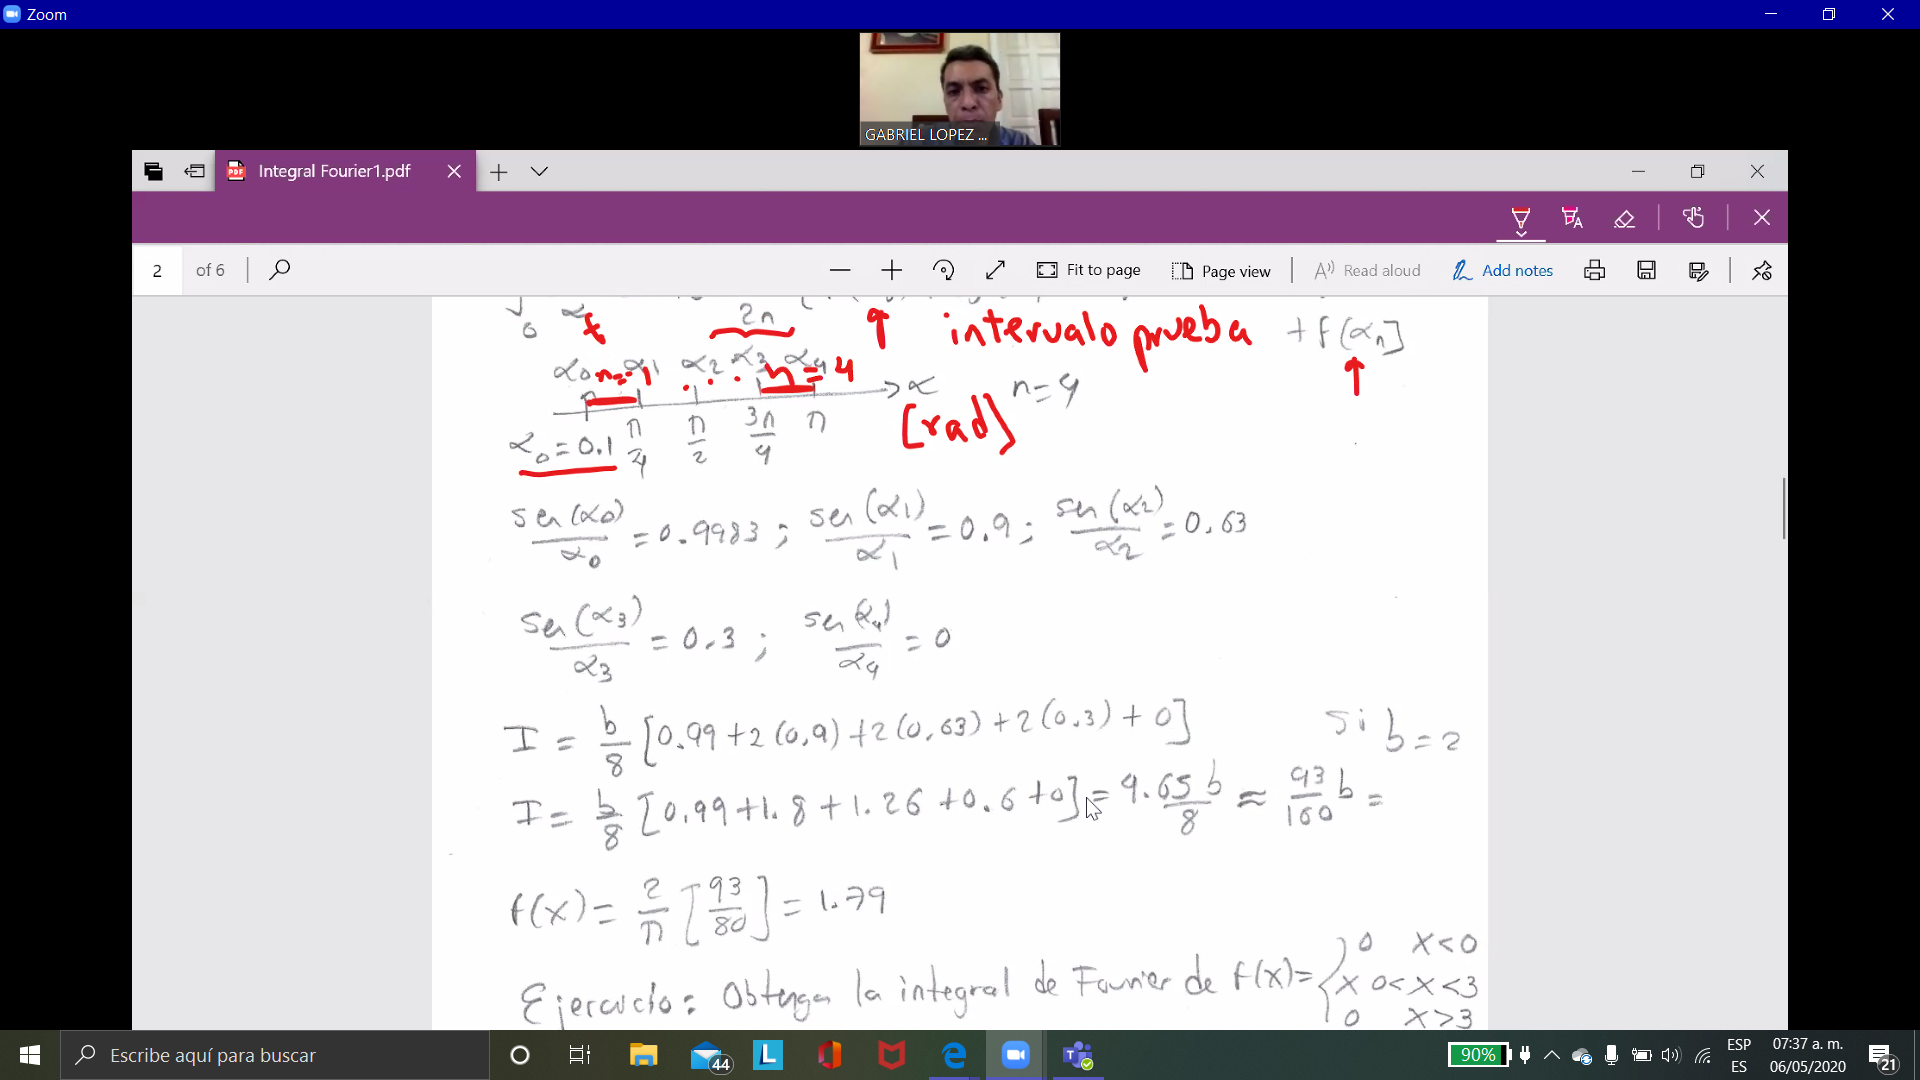 Zoom
GABRIEL LOPEZ ...
Integral Fourier1.pdf
2 of 6
Fit to page
Page view
Read aloud
Add notes
2n
0
intervalo prueba
+ f(αn]
α0 α1 α2 α3 α4
n=1 n=4
α n=4
π/4 π/2 3π/4 π
[rad]
α0 = 0.1
sen(α0)/α0 = 0.9983 ; sen(α1)/α1 = 0.9 ; sen(α2)/α2 = 0.63
sen(α3)/α3 = 0.3 ; sen(α4)/α4 = 0
I = b/8 [0.99 + 2(0.9) + 2(0.63) + 2(0.3) + 0] si b = 2
I = b/8 [0.99 + 1.8 + 1.26 + 0.6 + 0] = 4.65 b/8 ≈ 93/160 b =
f(x) = 2/π [93/80] = 1.79
Ejercicio: Obtenga la integral de Fourier de f(x) = { 0 x<0
x 0<x<3
0 x>3
Escribe aquí para buscar
44
90%
ESP
ES
07:37 a. m.
06/05/2020
21